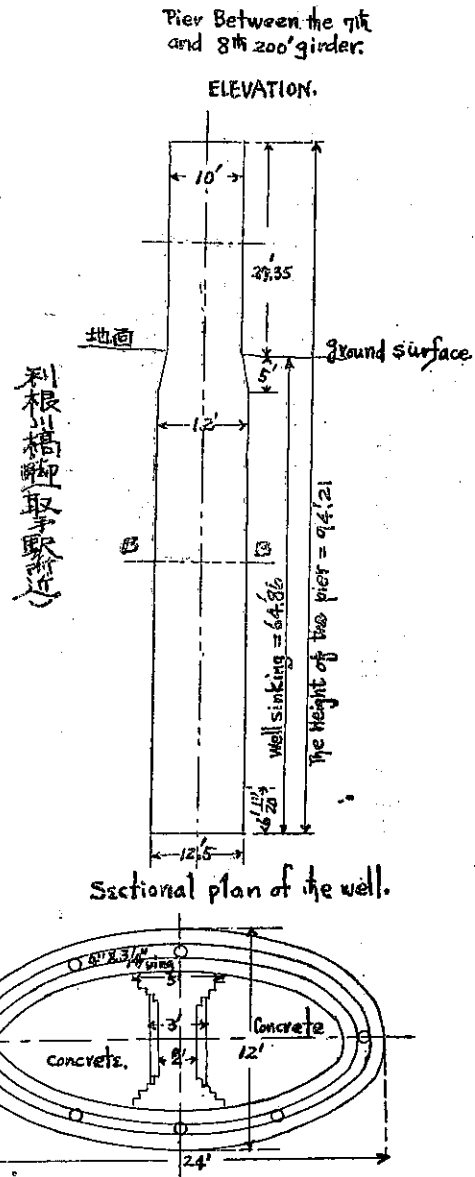 Pier Between the 7th
and 8th 200' girder.
ELEVATION.
10'
地面
ground surface
5'
12'
利根川橋脚(取手駅附近)
B
B
Well sinking = 64.86
The Height of the pier = 94.21
12.5
Sectional plan of the well.
5'
3'
2'
concrete.
Concrete
12'
24'